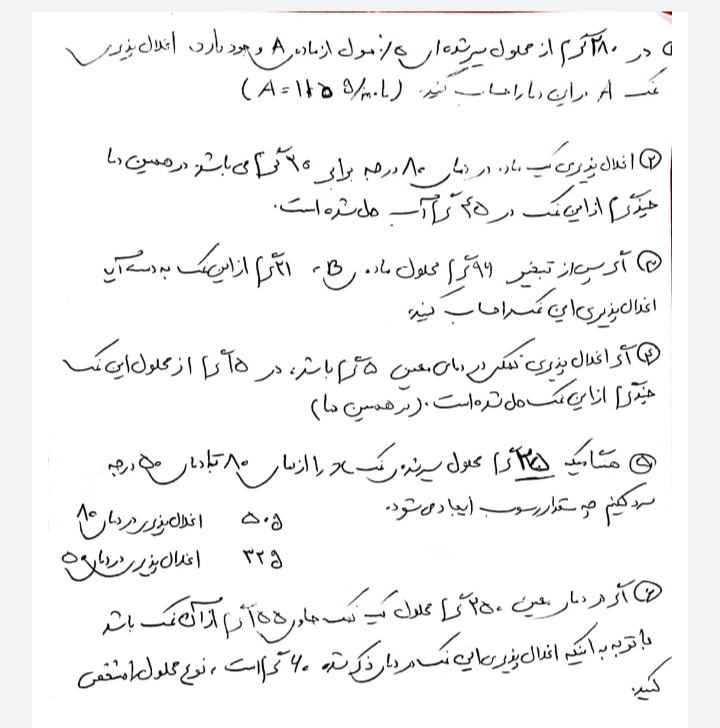 ① در ۲۸۰ گرم از محلول سیر شده‌ای ۰/۵ مول از ماده‌ی A وجود دارد، انحلال پذیری
نمک A در این دما را حساب کنید. (A = 1 g/mol)
② انحلال پذیری یک ماده در دمای ۸۰ درجه برابر ۳۰ گرم می باشد در همین دما
چند گرم از این نمک در ۴۵ گرم آب حل شده است.
③ اگر پس از تبخیر ۹۶ گرم محلول ماده‌ی B، ۲۱ گرم از این نمک به دست آید
انحلال پذیری این نمک را حساب کنید
④ اگر انحلال پذیری نمکی در دمای معین ۵ گرم باشد، در ۱۵ گرم از محلول این نمک
چند گرم از این نمک حل شده است. (در همین دما)
⑤ هنگامیکه گرم محلول سیر شده‌ی نمک x را از دمای ۸۰ تا دمای ۵۰ درجه
سرد کنیم چه مقدار رسوب ایجاد می شود.
انحلال پذیری در دمای ۸۰ ۵۰g
انحلال پذیری در دمای ۵۰ ۳۲g
⑥ اگر در دمای معین ۲۵۰ گرم محلول یک نمک حاوی ۵۵ گرم از آن نمک باشد
با توجه به اینکه انحلال پذیری این نمک در دمای ذکر شده ۶۰ گرم است، نوع محلول را مشخص
کنید.